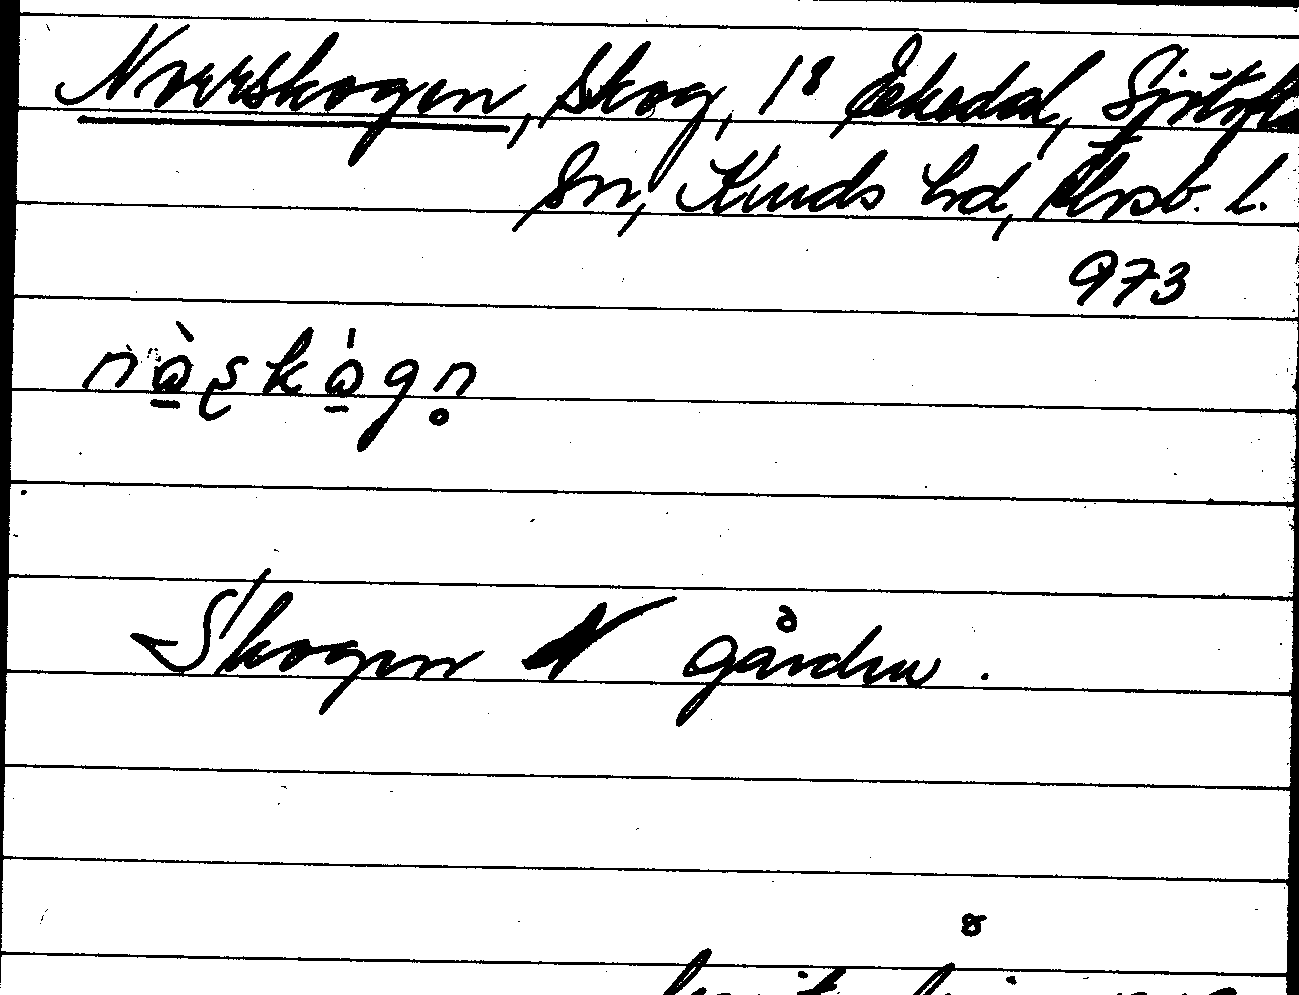 Norrskogen, Skog, 1⁸ Ekedal, Sjötofta
Sn, Kinds hd, Älvsb. l.
973
nòskógn̥
Skogen N gården.